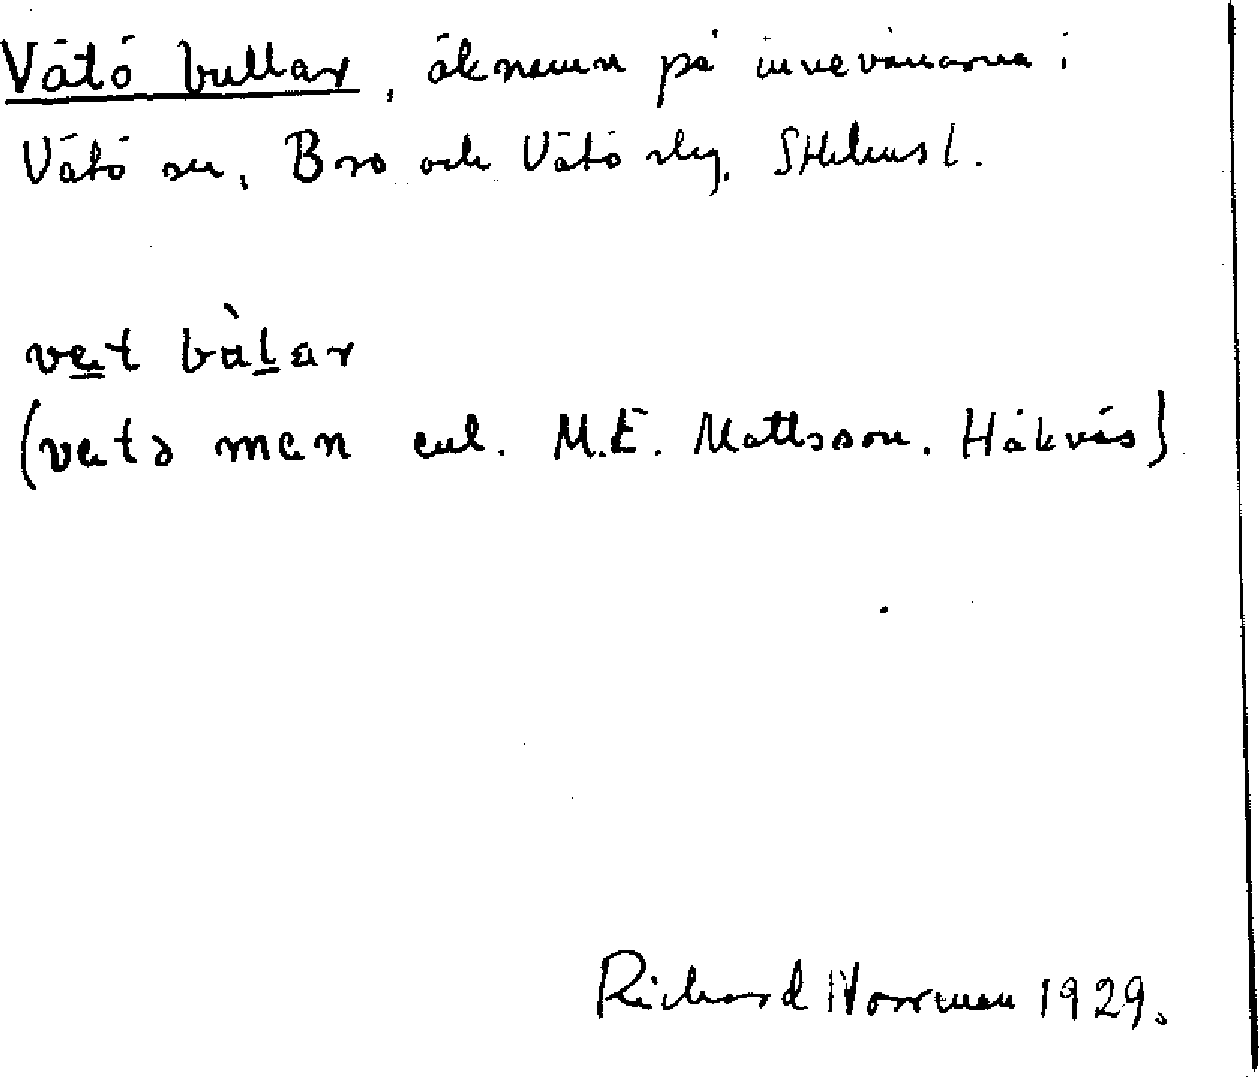 Vätö bullar, öknamn på invevånarna i
Vätö sn, Bro och Vätö skg, Sthlms l.
vat bùlar
(vatö man enl. M.E. Mattsson. Håkväs)
Richard Norrman 1929.